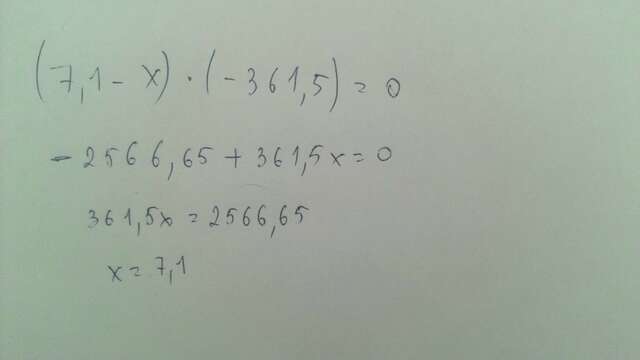 (7,1 - x) · (-361,5) = 0
- 2566,65 + 361,5x = 0
361,5x = 2566,65
x = 7,1